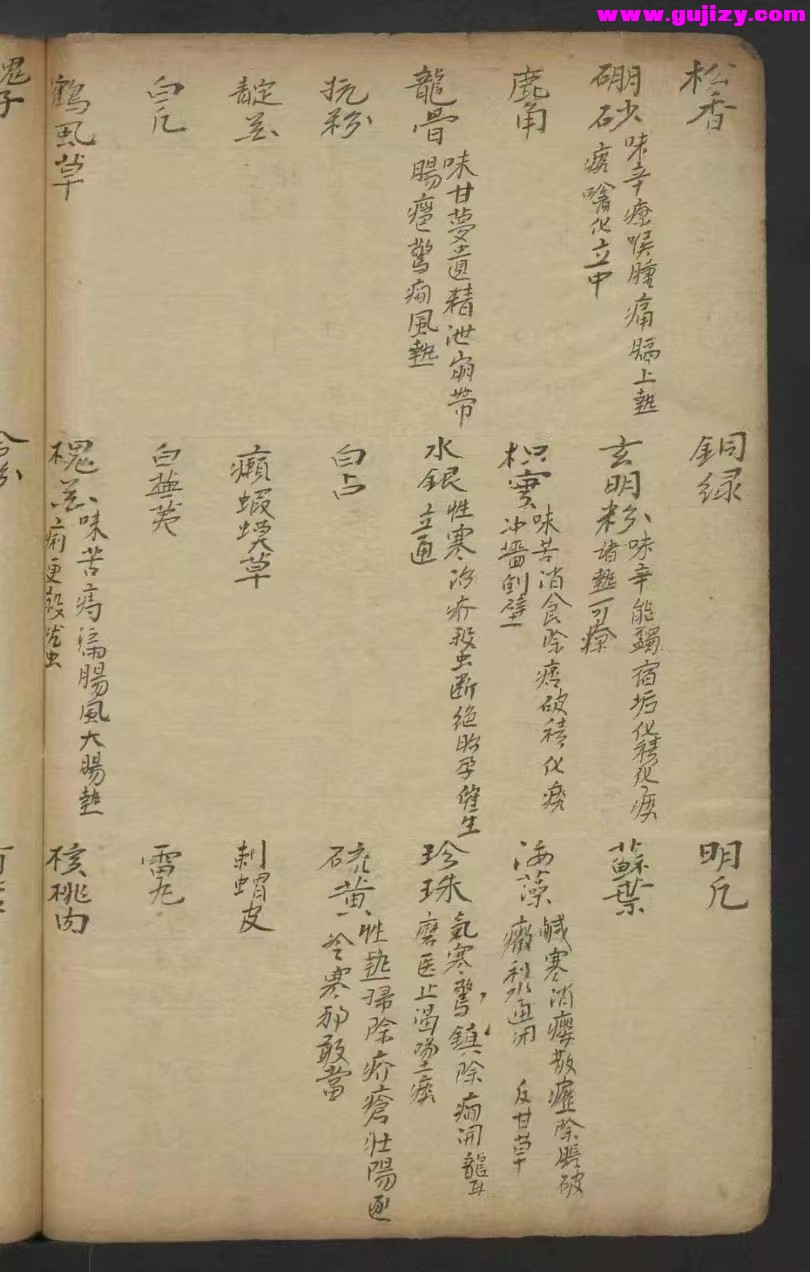 www.gujizy.com
松香
硼砂 味辛療喉腫痛膈上熱
痰噙化立中
鹿角
龍骨 味甘夢遺精泄崩帶
腸癰驚癇風熱
抗粉
靛花
白凡
鶴風草
銅緑
玄明粉 味辛能蠲宿垢化積化痰
諸熱可療
枳實 味苦消食除痞破積化痰
冲墻倒壁
水銀 性寒治疥殺虫断絶胎孕催生
立通
白占
癩蝦蟆草
白蕪荑
槐花 味苦痔漏腸風大腸熱
痢更殺蛔虫
明凡
蘇葉
海藻 鹹寒消癭散癧除脹破
癥利水通闭 反甘草
珍珠 氣寒鎮驚除癇開聾
磨医止渴墜痰
硫黄 性熱掃除疥瘡壯陽逐
冷寒邪敢當
刺蝟皮
雷丸
核桃肉